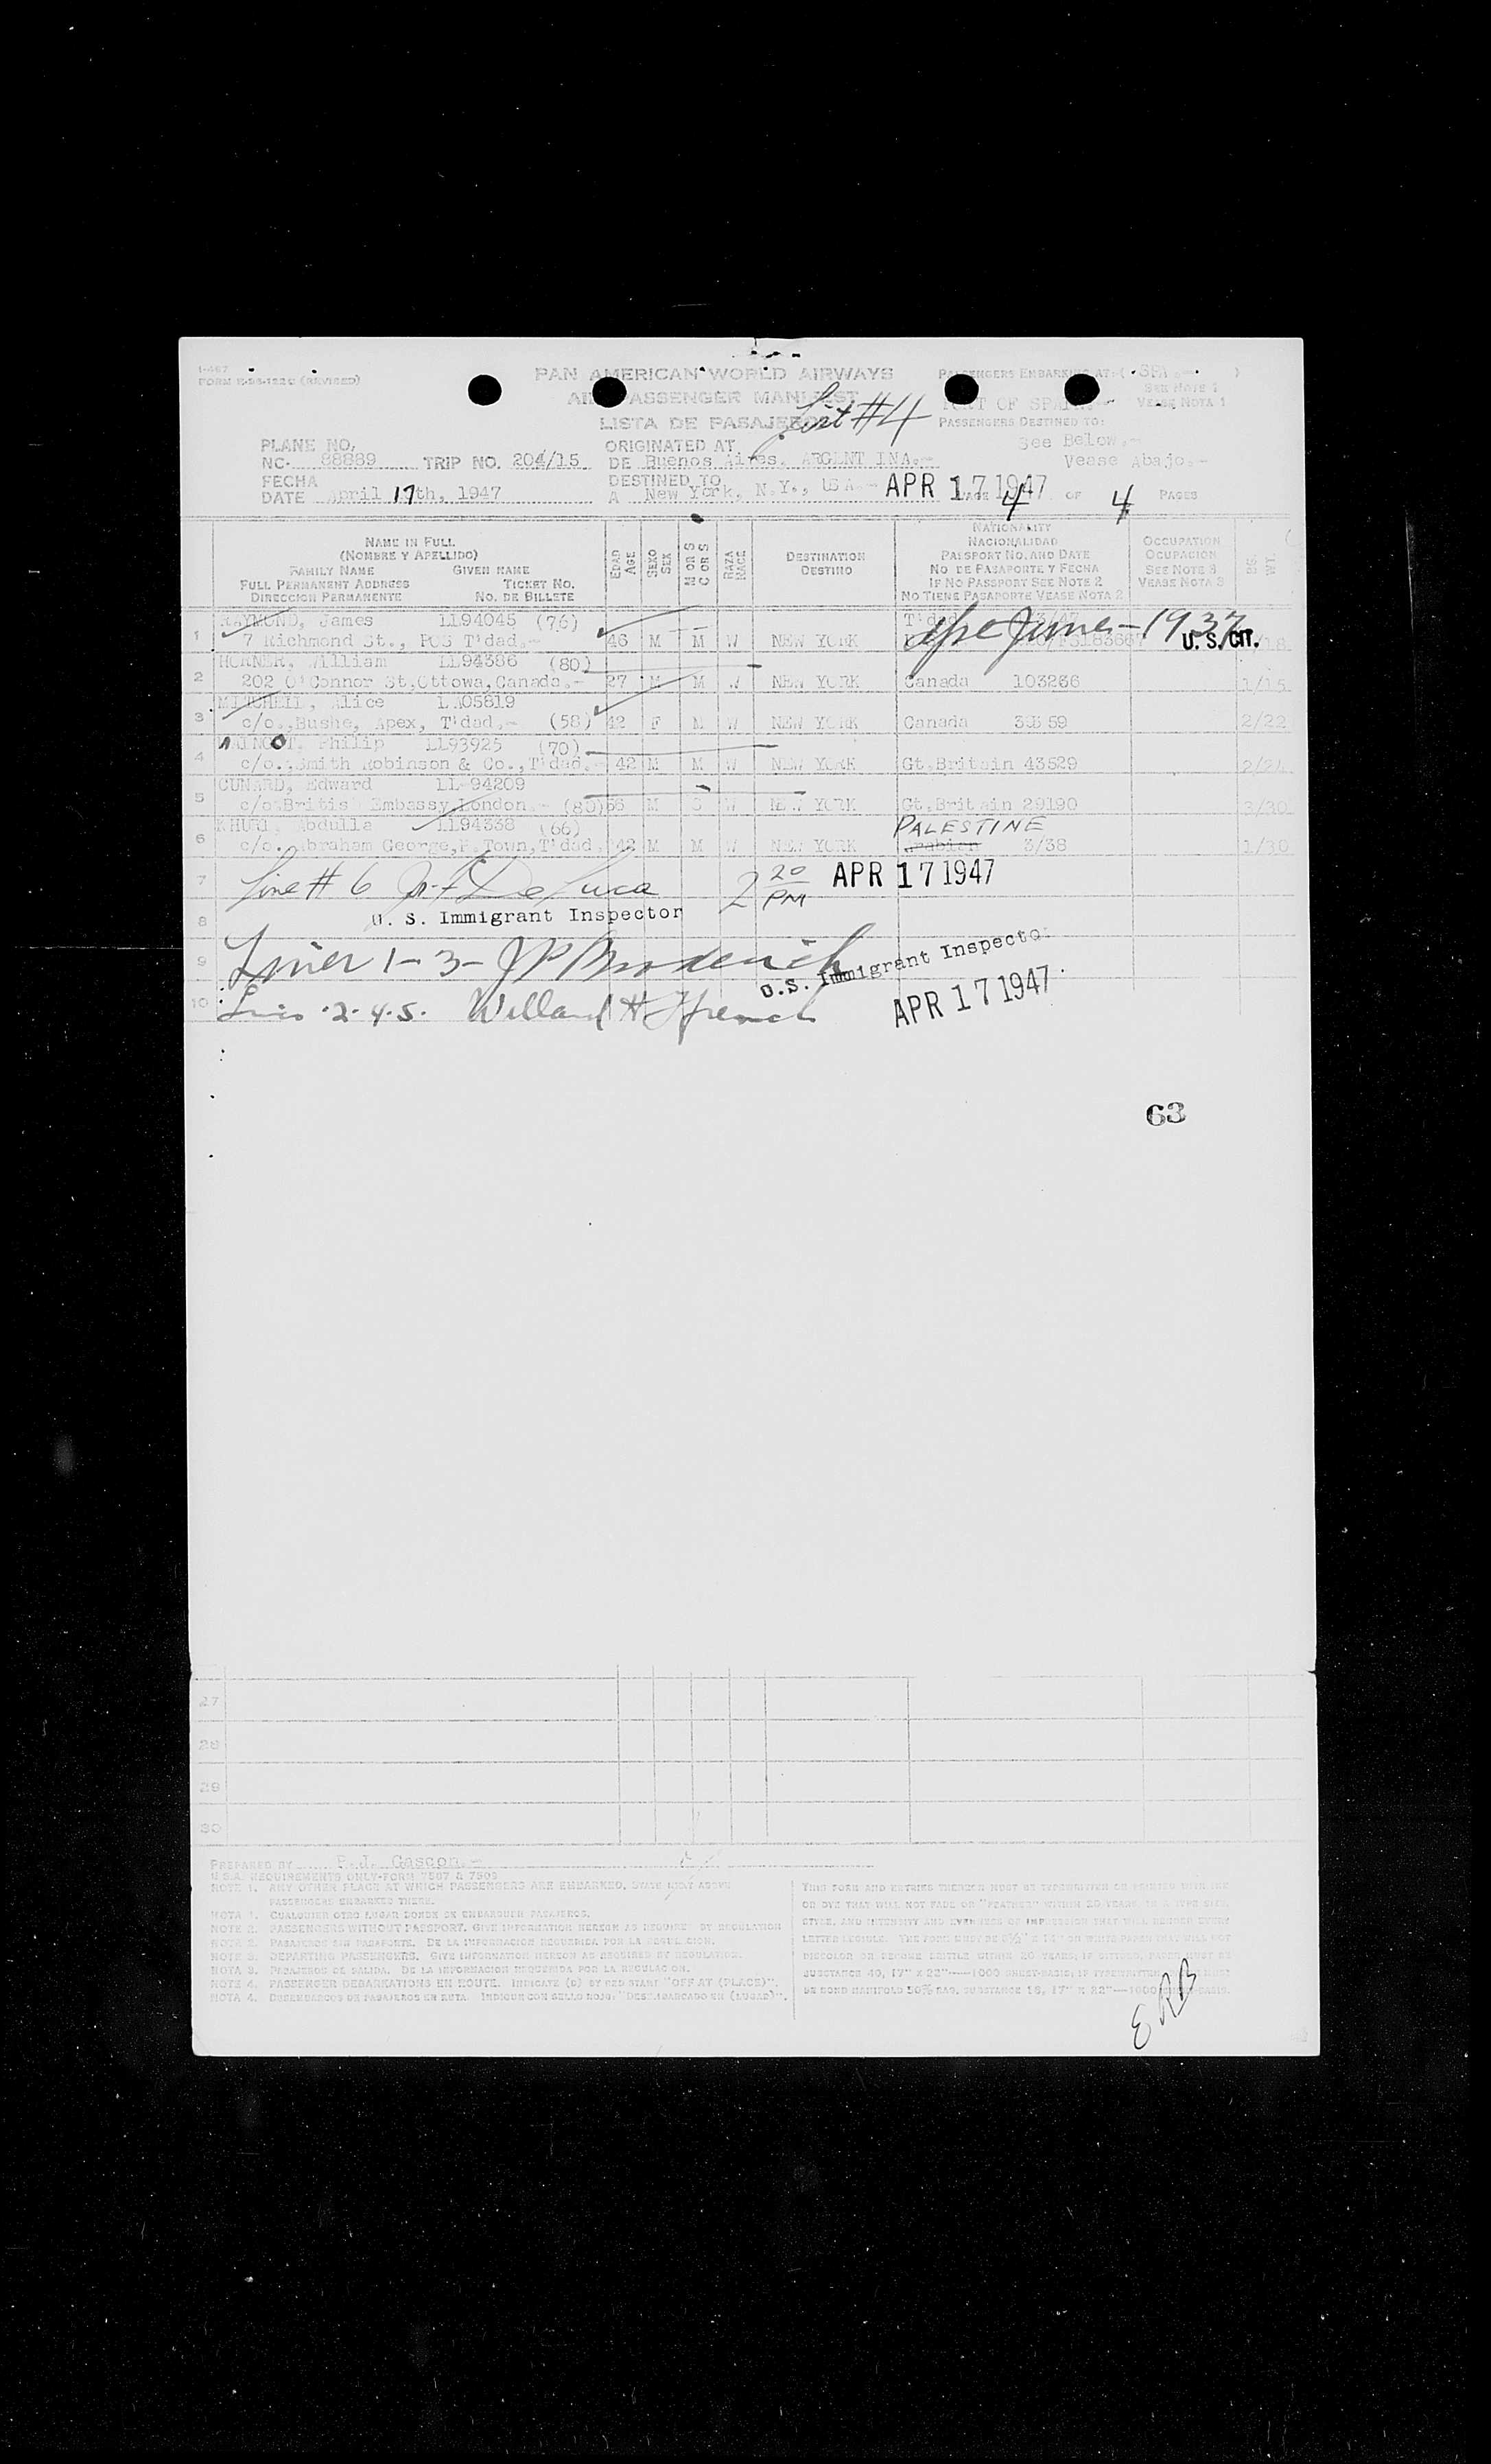 I-467
FORM E-98-122C (REVISED)
PAN AMERICAN WORLD AIRWAYS
AIR PASSENGER MANIFEST
LISTA DE PASAJEROS
List #4
PASSENGERS EMBARKING AT: ( SPA.- )
SEE NOTE 1
PORT OF SPAIN.- VEASE NOTA 1
PASSENGERS DESTINED TO:
See Below.-
Vease Abajo.-
PLANE NO.
NC- 88889 TRIP NO. 204/15
ORIGINATED AT
DE Buenos Aires, ARGENTINA.-
FECHA
DATE April 17th, 1947
DESTINED TO
A New York, N.Y., USA.-
APR 17 1947
PAGE 4 OF 4 PAGES
NAME IN FULL
(NOMBRE Y APELLIDO)
FAMILY NAME GIVEN NAME
FULL PERMANENT ADDRESS TICKET NO.
DIRECCION PERMANENTE NO. DE BILLETE
EDAD
AGE
SEXO
SEX
M OR S
C OR S
RAZA
RACE
DESTINATION
DESTINO
NATIONALITY
NACIONALIDAD
PASSPORT NO. AND DATE
NO. DE PASAPORTE Y FECHA
IF NO PASSPORT SEE NOTE 2
NO TIENE PASAPORTE VEASE NOTA 2
OCCUPATION
OCUPACION
SEE NOTE 3
VEASE NOTA 3
WT.
RAYMOND, James LL94045 (76)
1 7 Richmond St., POS T'dad.- 46 M M W NEW YORK
June-1937
U. S. CIT.
HORNER, William LL94386 (80)
2 202 O'Connor St,Ottowa,Canada.- 27 M M W NEW YORK Canada 103266 1/15
MITCHELL, Alice LA05819
3 c/o.,Bushe, Apex, T'dad.- (58) 42 F M W NEW YORK Canada 2/22
Philip LL93925 (70)
4 c/o.,Smith Robinson & Co.,T'dad.- 42 M M W NEW YORK Gt.Britain 43529 2/24
CUNARD, Edward LL-94209
5 c/o British Embassy,London.- (80) 56 M S W NEW YORK Gt.Britain 29190 3/30
KHURI, Abdulla LL94338 (66)
PALESTINE
6 c/o. Abraham George,P.Town,T'dad. 42 M M W NEW YORK Arabian 3/38 1/30
7 Line # 6 De Luca 2 20 PM APR 17 1947
8 U. S. Immigrant Inspector
9 Lines 1-3- JP Broderick
U.S. Immigrant Inspector
10 Lines 2-4-5. Willard H French
APR 17 1947
63
27
28
29
30
PREPARED BY P.J. Gascon.-
U.S.A. REQUIREMENTS ONLY-FORM 7507 & 7509
NOTE 1. ANY OTHER PLACE AT WHICH PASSENGERS ARE EMBARKED, STATE ABOVE
PASSENGERS EMBARKED THERE.
NOTA 1. CUALQUIER OTRO LUGAR DONDE SE EMBARQUEN PASAJEROS.
NOTE 2. PASSENGERS WITHOUT PASSPORT. GIVE INFORMATION HEREON AS REQUIRED BY REGULATION
NOTA 2. PASAJEROS SIN PASAPORTE. DE LA INFORMACION REQUERIDA POR LA REGULACION.
NOTE 3. DEPARTING PASSENGERS. GIVE INFORMATION HEREON AS REQUIRED BY REGULATION.
NOTA 3. PASAJEROS DE SALIDA. DE LA INFORMACION REQUERIDA POR LA REGULACION.
NOTE 4. PASSENGER DEBARKATIONS EN ROUTE. INDICATE (D) BY RED STAMP "OFF AT (PLACE)".
NOTA 4. DESEMBARCOS DE PASAJEROS EN RUTA. INDIQUE CON SELLO ROJO: "DESEMBARCADO EN (LUGAR)".
THIS FORM AND ENTRIES THEREON MUST BE TYPEWRITTEN OR PRINTED WITH INK
OR DYE THAT WILL NOT FADE OR "FEATHER" WITHIN 20 YEARS IN A TYPE SIZE,
STYLE, AND INTENSITY AND EVENNESS OF IMPRESSION THAT WILL RENDER EVERY
LETTER LEGIBLE.
DISCOLOR OR BECOME BRITTLE WITHIN 20 YEARS;
SUBSTANCE 40, 17" X 22"
BE BOND MANIFOLD 50% RAG, SUBSTANCE 16, 17" X 22"
ERB